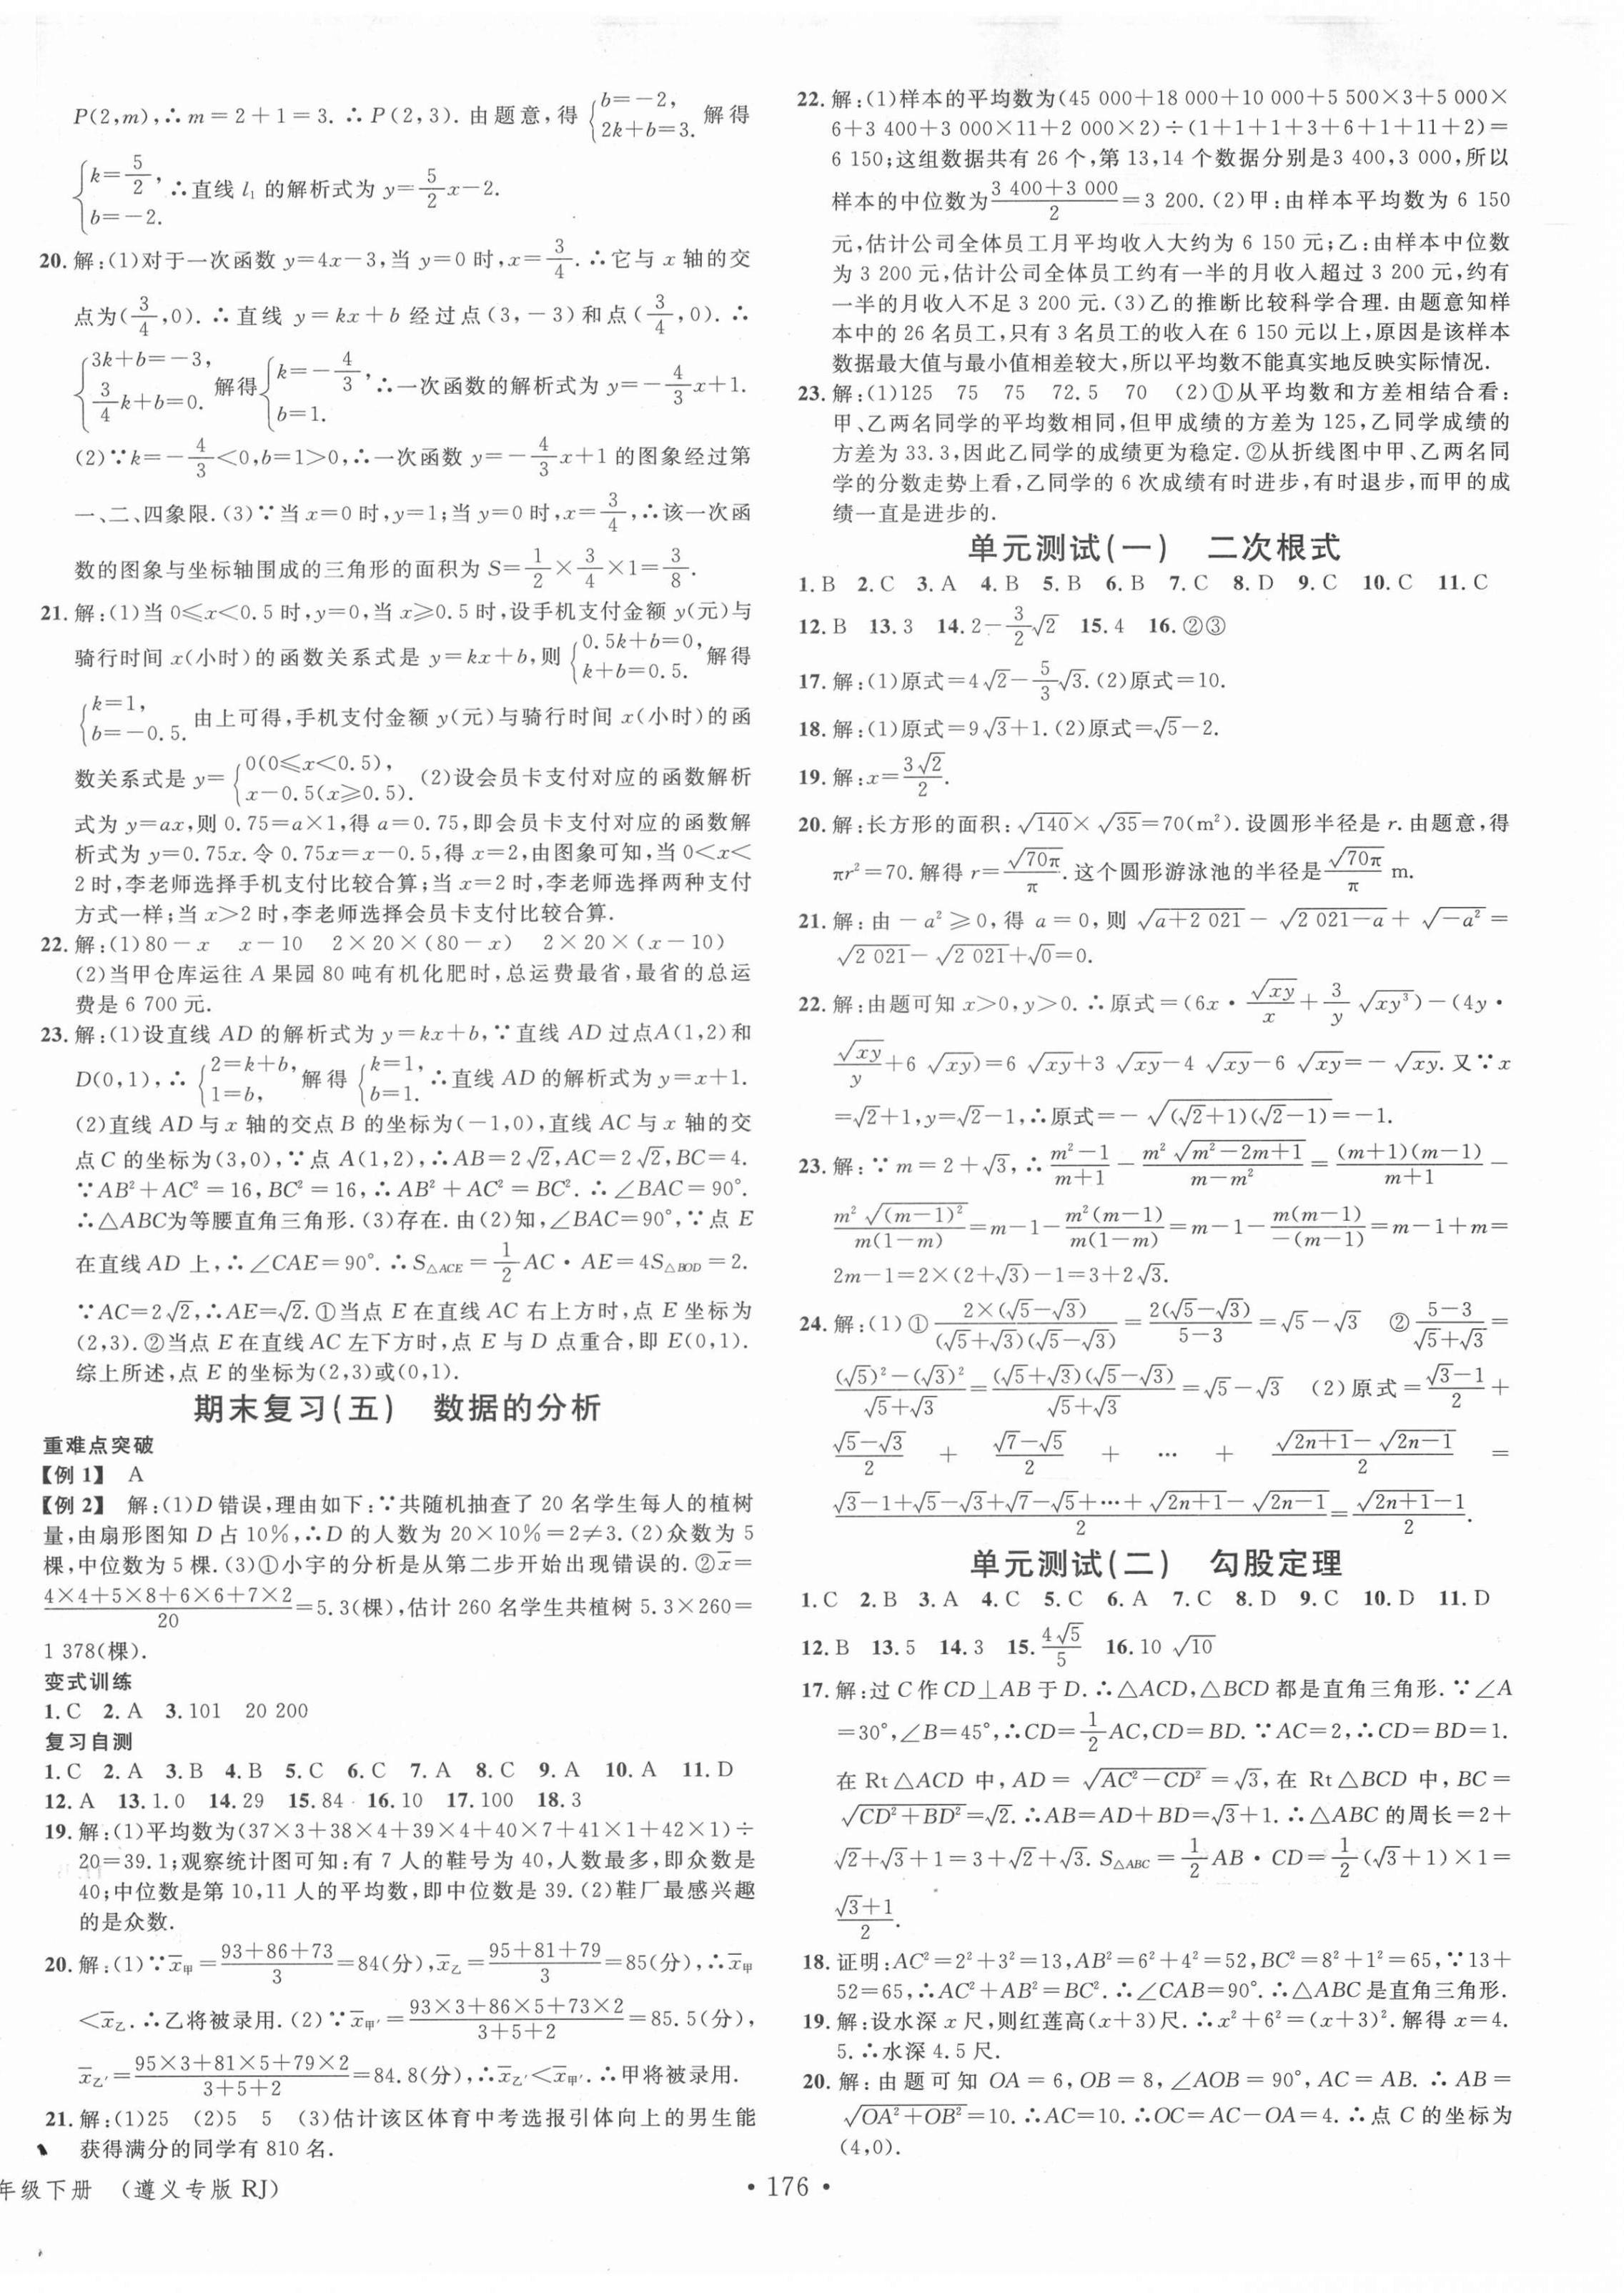 P(2,m),∴m=2+1=3.∴P(2,3).由题意,得{b=-2, 2k+b=3. 解得
{k=5/2, b=-2. ∴直线 l₁ 的解析式为 y=5/2x-2.
20.解:(1)对于一次函数 y=4x-3,当 y=0 时,x=3/4.∴它与 x 轴的交
点为(3/4,0).∴直线 y=kx+b 经过点(3,-3)和点(3/4,0).∴
{3k+b=-3, 3/4k+b=0. 解得{k=-4/3, b=1. ∴一次函数的解析式为 y=-4/3x+1.
(2)∵k=-4/3<0,b=1>0,∴一次函数 y=-4/3x+1 的图象经过第
一、二、四象限.(3)∵当 x=0 时,y=1;当 y=0 时,x=3/4,∴该一次函
数的图象与坐标轴围成的三角形的面积为 S=1/2×3/4×1=3/8.
21.解:(1)当 0≤x<0.5 时,y=0,当 x≥0.5 时,设手机支付金额 y(元)与
骑行时间 x(小时)的函数关系式是 y=kx+b,则{0.5k+b=0, k+b=0.5. 解得
{k=1, b=-0.5. 由上可得,手机支付金额 y(元)与骑行时间 x(小时)的函
数关系式是 y={0(0≤x<0.5), x-0.5(x≥0.5). (2)设会员卡支付对应的函数解析
式为 y=ax,则 0.75=a×1,得 a=0.75,即会员卡支付对应的函数解
析式为 y=0.75x.令 0.75x=x-0.5,得 x=2,由图象可知,当 0<x<
2 时,李老师选择手机支付比较合算;当 x=2 时,李老师选择两种支付
方式一样;当 x>2 时,李老师选择会员卡支付比较合算.
22.解:(1)80-x x-10 2×20×(80-x) 2×20×(x-10)
(2)当甲仓库运往 A 果园 80 吨有机化肥时,总运费最省,最省的总运
费是 6 700 元.
23.解:(1)设直线 AD 的解析式为 y=kx+b,∵直线 AD 过点A(1,2)和
D(0,1),∴{2=k+b, 1=b, 解得{k=1, b=1. ∴直线 AD 的解析式为 y=x+1.
(2)直线 AD 与 x 轴的交点 B 的坐标为(-1,0),直线 AC 与 x 轴的交
点 C 的坐标为(3,0),∵点 A(1,2),∴AB=2√2,AC=2√2,BC=4.
∵AB²+AC²=16,BC²=16,∴AB²+AC²=BC².∴∠BAC=90°.
∴△ABC为等腰直角三角形.(3)存在.由(2)知,∠BAC=90°,∵点 E
在直线 AD 上,∴∠CAE=90°.∴S△ACE=1/2AC·AE=4S△BOD=2.
∵AC=2√2,∴AE=√2.①当点 E 在直线 AC 右上方时,点 E 坐标为
(2,3).②当点 E 在直线 AC 左下方时,点 E 与 D 点重合,即 E(0,1).
综上所述,点 E 的坐标为(2,3)或(0,1).
期末复习(五) 数据的分析
重难点突破
【例 1】 A
【例 2】 解:(1)D 错误,理由如下:∵共随机抽查了 20 名学生每人的植树
量,由扇形图知 D 占 10%,∴D 的人数为 20×10%=2≠3.(2)众数为 5
棵,中位数为 5 棵.(3)①小宇的分析是从第二步开始出现错误的.②x̄=
(4×4+5×8+6×6+7×2)/20=5.3(棵),估计 260 名学生共植树 5.3×260=
1 378(棵).
变式训练
1.C 2.A 3.101 20 200
复习自测
1.C 2.A 3.B 4.B 5.C 6.C 7.A 8.C 9.A 10.A 11.D
12.A 13.1.0 14.29 15.84 16.10 17.100 18.3
19.解:(1)平均数为(37×3+38×4+39×4+40×7+41×1+42×1)÷
20=39.1;观察统计图可知:有 7 人的鞋号为 40,人数最多,即众数是
40;中位数是第 10,11 人的平均数,即中位数是 39.(2)鞋厂最感兴趣
的是众数.
20.解:(1)∵x̄甲=(93+86+73)/3=84(分),x̄乙=(95+81+79)/3=85(分),∴x̄甲
<x̄乙.∴乙将被录用.(2)∵x̄甲′=(93×3+86×5+73×2)/(3+5+2)=85.5(分),
x̄乙′=(95×3+81×5+79×2)/(3+5+2)=84.8(分),∴x̄乙′<x̄甲′.∴甲将被录用.
21.解:(1)25 (2)5 5 (3)估计该区体育中考选报引体向上的男生能
获得满分的同学有 810 名.
22.解:(1)样本的平均数为(45 000+18 000+10 000+5 500×3+5 000×
6+3 400+3 000×11+2 000×2)÷(1+1+1+3+6+1+11+2)=
6 150;这组数据共有 26 个,第 13,14 个数据分别是3 400,3 000,所以
样本的中位数为(3 400+3 000)/2=3 200.(2)甲:由样本平均数为 6 150
元,估计公司全体员工月平均收入大约为 6 150 元;乙:由样本中位数
为 3 200 元,估计公司全体员工约有一半的月收入超过 3 200 元,约有
一半的月收入不足 3 200 元.(3)乙的推断比较科学合理.由题意知样
本中的 26 名员工,只有 3 名员工的收入在 6 150 元以上,原因是该样本
数据最大值与最小值相差较大,所以平均数不能真实地反映实际情况.
23.解:(1)125 75 75 72.5 70 (2)①从平均数和方差相结合看:
甲、乙两名同学的平均数相同,但甲成绩的方差为 125,乙同学成绩的
方差为 33.3,因此乙同学的成绩更为稳定.②从折线图中甲、乙两名同
学的分数走势上看,乙同学的 6 次成绩有时进步,有时退步,而甲的成
绩一直是进步的.
单元测试(一) 二次根式
1.B 2.C 3.A 4.B 5.B 6.B 7.C 8.D 9.C 10.C 11.C
12.B 13.3 14.2-3/2√2 15.4 16.②③
17.解:(1)原式=4√2-5/3√3.(2)原式=10.
18.解:(1)原式=9√3+1.(2)原式=√5-2.
19.解:x=3√2/2.
20.解:长方形的面积:√140×√35=70(m²).设圆形半径是 r.由题意,得
πr²=70.解得 r=√(70π)/π.这个圆形游泳池的半径是√(70π)/π m.
21.解:由-a²≥0,得 a=0,则 √(a+2 021)-√(2 021-a)+√(-a²)=
√2 021-√2 021+√0=0.
22.解:由题可知 x>0,y>0.∴原式=(6x·√(xy)/x+3/y√(xy³))-(4y·
√(xy)/y+6√(xy))=6√(xy)+3√(xy)-4√(xy)-6√(xy)=-√(xy).又∵x
=√2+1,y=√2-1,∴原式=-√((√2+1)(√2-1))=-1.
23.解:∵m=2+√3,∴(m²-1)/(m+1)-m²√(m²-2m+1)/(m-m²)=(m+1)(m-1)/(m+1)-
m²√((m-1)²)/(m(1-m))=m-1-m²(m-1)/(m(1-m))=m-1-m(m-1)/(-(m-1))=m-1+m=
2m-1=2×(2+√3)-1=3+2√3.
24.解:(1)①2×(√5-√3)/((√5+√3)(√5-√3))=2(√5-√3)/(5-3)=√5-√3 ②(5-3)/(√5+√3)=
((√5)²-(√3)²)/(√5+√3)=(√5+√3)(√5-√3)/(√5+√3)=√5-√3 (2)原式=(√3-1)/2+
(√5-√3)/2+(√7-√5)/2+…+(√(2n+1)-√(2n-1))/2=
(√3-1+√5-√3+√7-√5+…+√(2n+1)-√(2n-1))/2=(√(2n+1)-1)/2.
单元测试(二) 勾股定理
1.C 2.B 3.A 4.C 5.C 6.A 7.C 8.D 9.C 10.D 11.D
12.B 13.5 14.3 15.4√5/5 16.10 √10
17.解:过 C 作 CD⊥AB 于 D.∴△ACD,△BCD 都是直角三角形.∵∠A
=30°,∠B=45°,∴CD=1/2AC,CD=BD.∵AC=2,∴CD=BD=1.
在 Rt△ACD 中,AD=√(AC²-CD²)=√3,在 Rt△BCD 中,BC=
√(CD²+BD²)=√2.∴AB=AD+BD=√3+1.∴△ABC 的周长=2+
√2+√3+1=3+√2+√3.S△ABC=1/2AB·CD=1/2(√3+1)×1=
(√3+1)/2.
18.证明:AC²=2²+3²=13,AB²=6²+4²=52,BC²=8²+1²=65,∵13+
52=65,∴AC²+AB²=BC².∴∠CAB=90°.∴△ABC 是直角三角形.
19.解:设水深 x 尺,则红莲高(x+3)尺.∴x²+6²=(x+3)².解得 x=4.
5.∴水深 4.5 尺.
20.解:由题可知 OA=6,OB=8,∠AOB=90°,AC=AB.∴AB=
√(OA²+OB²)=10.∴AC=10.∴OC=AC-OA=4.∴点 C 的坐标为
(4,0).
年级下册 (遵义专版 RJ)
· 176 ·